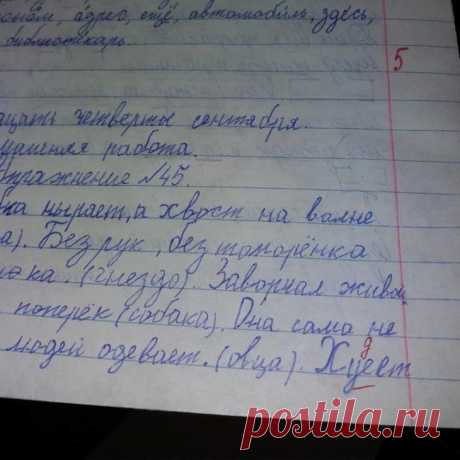 адрес, ещё, автомобиль, здесь,
библиотекарь.
5
четверты сентября.
работа.
пражнение №45.
ныряет, а хвост на волне
а). Без рук, без топорёнка
(гнездо). Заворчал живой
поперёк (собака). Она сама не
людей одевает. (овца). Худеет
postila.ru